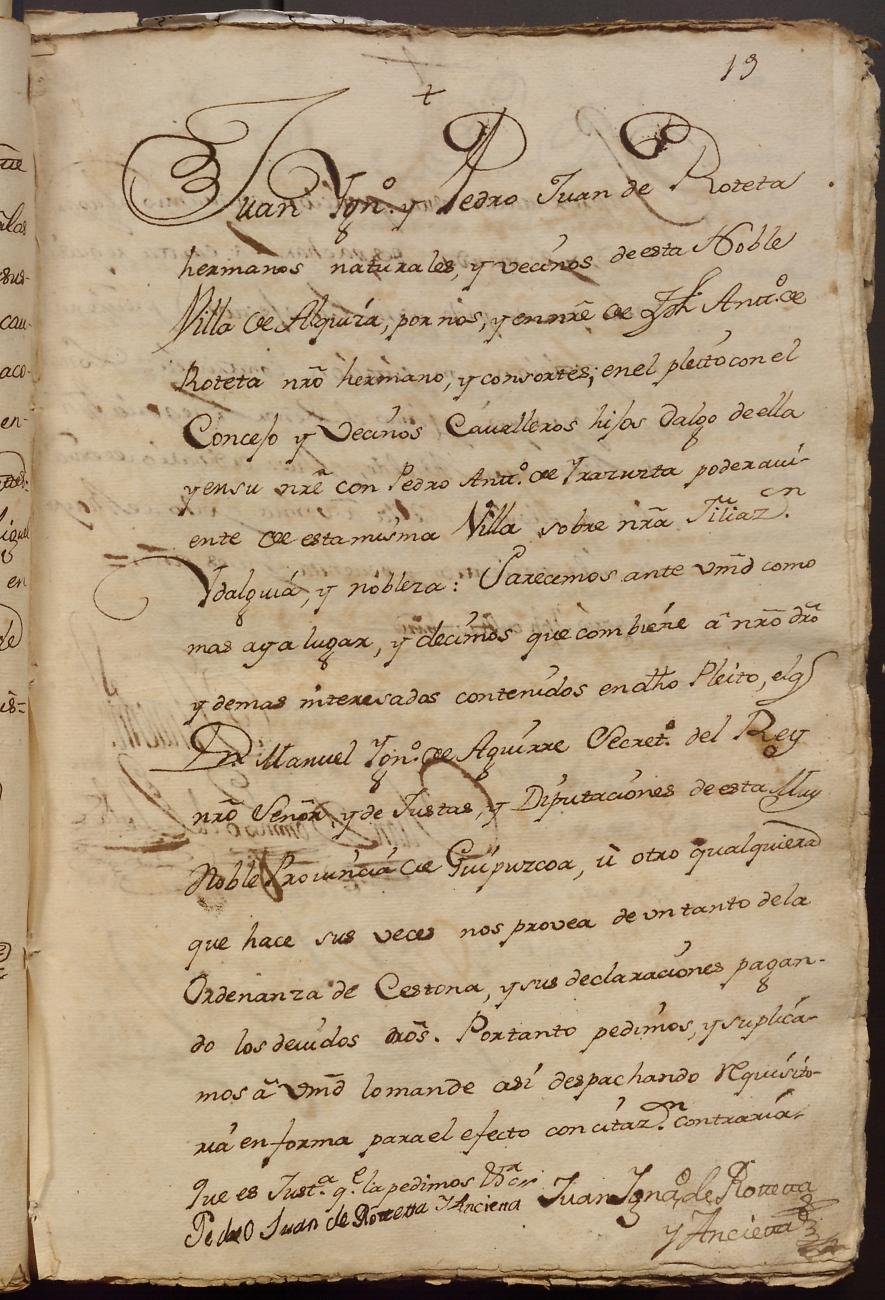 19
+
Juan Ygn.º y Pedro Juan de Roteta
hermanos naturales, y vecinos de esta Noble
Villa de Alquiza, por nos, y en nrẽ de Jph Antt.º de
Roteta nrõ hermano, y consortes; en el pleito con el
Concejo y Vecinos Cavalleros hijos Dalgo de ella
y en su nrẽ con Pedro Antt.º de Irazuzta poderavi-
ente de esta misma Villa sobre nrã filiaz.n
Ydalguia, y nobleza: Parecemos ante vmd como
mas aya lugar, y decimos que combiene a nrõ drõ
y demas interesados contenidos en dho Pleito, el q̃
Dn Manuel Ygn.º de Aguirre Secret.º del Rey
nrõ Señor, y de Justas, y Diputaciones de esta Muy
Noble Provincia de Guipuzcoa, ù otro qualquiera
que hace sus veces nos provea de un tanto de la
Ordenanza de Cestona, y sus declaraciones pagan-
do los devidos drõs. Portanto pedimos, y suplica-
mos a vmd lo mande asi despachando requisito-
ria en forma para el efecto con citaz.n contraria,
que es Just.a q.e la pedimos
Juan Ygna.º de Rotetta
Pedro Juan de Rotetta Y Anciena
y Ancietta